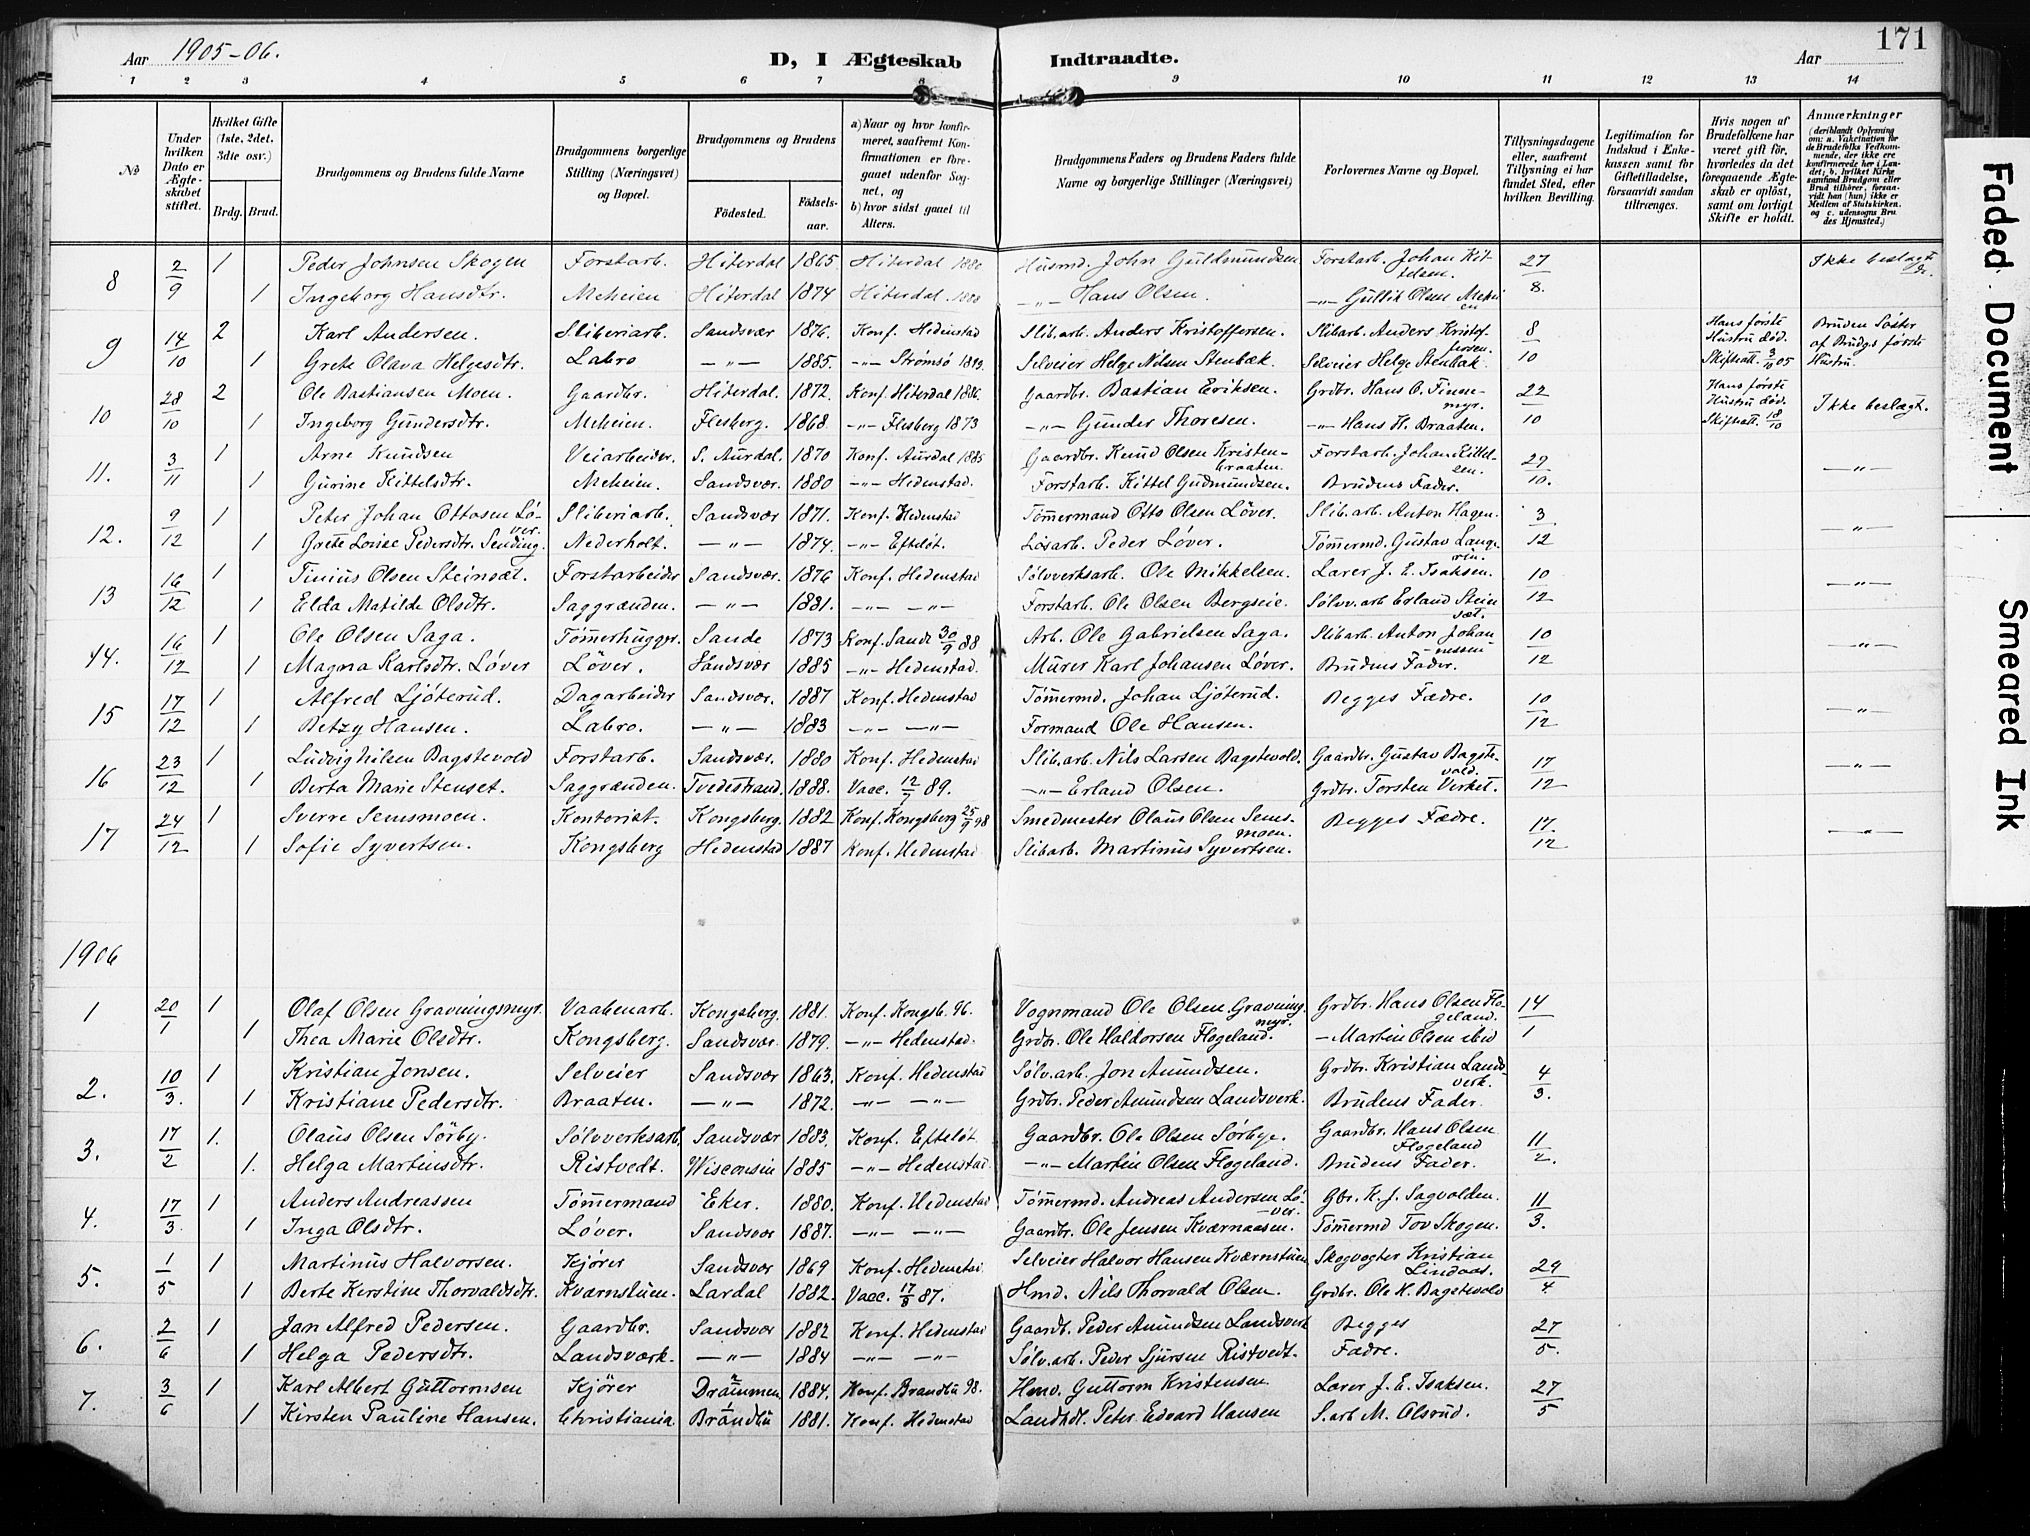 171
Aar 1905-06.
D, I Ægteskab Indtraadte.
Aar
1 2 3 4 5 6 7 8 9 10 11 12 13 14
No
Under hvilken Dato er Ægteskabet stiftet.
Hvilket Gifte (1ste, 2det, 3die osv.)
Brdg. Brud.
Brudgommens og Brudens fulde Navne
Brudgommens borgerlige Stilling (Næringsvei) og Bopæl.
Brudgommens og Brudens
Födested.
Födselsaar.
a) Naar og hvor konfirmeret, saafremt Konfirmationen er foregaaet udenfor Sognet, og
b) hvor sidst gaaet til Alters.
Brudgommens Faders og Brudens Faders fulde Navne og borgerlige Stillinger (Næringsvei)
Forlovernes Navne og Bopæl.
Tillysningsdagene eller, saafremt Tillysning ei har fundet Sted, efter hvilken Bevilling.
Legitimation for Indskud i Enkekassen samt for Giftetilladelse, forsaavidt saadan tiltrænges.
Hvis nogen af Brudefolkene har været gift för, hvorledes da det foregaaende Ægteskab er oplöst, samt om lovligt Skifte er holdt.
Anmærkninger
8 2/9 1 Peder Johnsen Skogen Forstarb. Hiterdal 1865 Hiterdal 1880 Husmd. John Guldmundsen Forstarb. Johan Kittelsen. 27/8. Ikke beslagt
1 Ingeborg Hansdtr. Meheien Hiterdal 1874 Hiterdal -"- Hans Olsen. -"- Gullik Olsen Meheien
9 14/10 2 Karl Andersen. Sliberiarb. Sandsvær 1876. Konf. Hedenstad Slib.arb. Anders Kristoffersen. Slibarb. Anders Kristoffersen. 8/10 Hans første Hustru død. Skifteatt. 3/10 05 Bruden Søster af Brudgs første Hustru.
1 Grete Olava Helgesdtr. Labro -"- 1885. -"- Strømsø 1899. Selveier Helge Nilsen Stenbæk Selveier Helge Stenbak
10 28/10 2 Ole Bastiansen Moen. Gaardbr. Hiterdal. 1872. Konf. Hiterdal 1886. Gaardbr. Bastian Eriksen. Grdbr. Hans O. Tinnemyr. 22/10 Hans første Hustru død. Skifteatt. 18/10 Ikke beslagt.
1 Ingeborg Gundersdtr. Meheien. Flesberg. 1868. -"- Flesberg 1873 -"- Gunder Thoresen. -"- Hans H. Braaten.
11. 3/11 1 Arne Knudsen Veiarbeider. S. Aurdal. 1870 Konf. Aurdal 1885 Gaardbr. Knud Olsen Kristenbraaten. Forstarb. Johan Kittelsen. 29/10. -"-
1 Gurine Kittelsdtr. Meheien. Sandsvær. 1880 -"- Hedenstad. Forstarb. Kittel Gudmundsen. Brudens Fader.
12. 9/12 1 Peter Johan Ottosen Løver. Sliberiarb. Sandsvær 1871. Konf. Hedenstad Tømmermand Otto Olsen Løver. Slib.arb. Anton Hagen. 3/12 -"-
1 Grete Louise Pedersdtr. Sending. Nederholt. -"- 1874. -"- Efteløt. Løsarb. Peder Løver. Tømmermd. Gustav Langerin.
13 16/12 1 Tinius Olsen Steinsæt. Forstarbeider Sandsvær. 1876 Konf. Hedenstad Sølvverksarb. Ole Mikkelsen. Lærer J. E. Isaksen. 10/12 -"-
1 Elda Matilde Olsdtr. Saggrænden. -"- 1881. -"- -"- Forstarb. Ole Olsen Bergseie. Sølvv.arb Erland Steinsæt.
14. 16/12 1 Ole Olsen Saga. Tømmerhugger. Sande 1873 Konf. Sande 30/9 88 Arb. Ole Gabrielsen Saga. Slib.arb. Anton Johannessen 10/12 -"-
1 Magna Karlsdtr. Løver Løver. Sandsvær 1885 -"- Hedenstad. Murer Karl Johansen Løver. Brudens Fader.
15 17/12 1 Alfred Ljøterud. Dagarbeider Sandsvær. 1887 Konf. Hedenstad Tømmermd. Johan Ljøterud. Begges Fædre. 10/12 -"-
1 Betzy Hansen. Labro. -"- 1883 -"- -"- Formand Ole Hansen.
16 23/12 1 Ludvig Nilsen Bagstevold Forstarb. Sandsvær. 1880 Konf. Hedenstad Slib.arb. Nils Larsen Bagstevold. Gaardbr. Gustav Bagstevold. 17/12 -"-
1 Berta Marie Stenset. Saggrænden. Tvedestrand. 1888. Vacc. 12/7 89. -"- Erland Olsen. Grdbr. Torsten Virket.
17 24/12 1 Sverre Semsmoen. Kontorist. Kongsberg. 1882 Konf. Kongsberg 25/9 98 Smedmester Olaus Olsen Semsmoen. Begges Fædre. 17/12 -"-
1 Sofie Syvertsen. Kongsberg Hedenstad 1887 Konf. Hedenstad Slibarb. Martinus Syvertsen.
1906
1 20/1 1 Olaf Olsen Gravningsmyr. Vaabenarb. Kongsberg. 1881. Konf. Kongsb. 96. Vognmand Ole Olsen Gravningmyr. Grdbr. Hans Olsen Flogeland. 14/1
1 Thea Marie Olsdtr. Kongsberg. Sandsvær. 1879. -"- Hedenstad. Grdbr. Ole Haldorsen Flogeland. - Martin Olsen ibid
2. 10/3. 1 Kristian Jonsen. Selveier Sandsvær 1863. Konf. Hedenstad Sølv.arb. Jon Amundsen. Grdbr. Kristian Landsverk. 4/3.
1 Kristiane Pedersdtr. Braaten. -"- 1872. -"- -"- Grdbr. Peder Amundsen Landsverk. Brudens Fader.
3. 17/2 1. Olaus Olsen Sørby. Sølvverksarb. Sandsvær 1883. Konf. Efteløt Gaardbr. Ole Olsen Sørbye. Gaardbr. Hans Olsen Flogeland 11/2.
1. Helga Martinsdtr. Ristvedt. Wisconsin 1885 -"- Hedenstad. -"- Martin Olsen Flogeland. Brudens Fader.
4. 17/3. 1 Anders Andreassen Tømmermand Eker. 1880. Konf. Hedenstad Tømmermd. Andreas Andersen Løver. Gbr. K. J. Sagvolden. 11/3.
1 Inga Olsdtr. Løver. Sandsvær 1887. -"- -"- Gaardbr. Ole Jensen Kværnaasen. Tømmermd Tov Skogen.
5. 1/5 1 Martinus Halvorsen. Kjører Sandsvær 1869 Konf. Hedenstad Selveier Halvor Hansen Kværnstuen Skogvogter Kristian Lindaas. 29/4
1 Berte Kerstine Thorvaldsdtr. Kværnstuen. Lardal 1882. Vacc. 17/8 87. Hmd. Nils Thorvald Olsen. Grdbr. Ole K. Bagstevold
6. 2/6 1 Jan Alfred Pedersen. Gaardbr. Sandsvær 1882 Konf. Hedenstad Gaardb. Peder Amundsen Landsverk Begges 27/5.
1 Helga Pedersdtr. Landsværk. -"- 1884 -"- -"- Sølv.arb. Peder Sjursen Ristvedt. Fædre.
7. 3/6 1 Karl Albert Guttormsen Kjører Drammen 1884. Konf. Brandbu 98. Hmd. Guttorm Kristensen Lærer J. E. Isaksen. 27/5
1 Kirsten Pauline Hansen. Christiania. Brandbu 1881. Konf. Hedenstad Landhdl. Peter Edvard Hansen S.arb M. Olsrud.
Faded Document
Smeared Ink